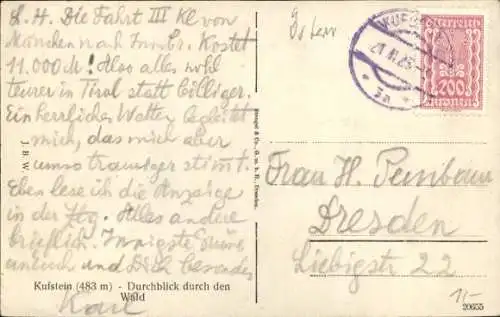 L. H. Die Fahrt III Kl von
München nach Innbr. Kostet
11.000 M! Also alles wohl
teurer in Tirol statt billiger.
Ein herrliches Wetter begleitet
mich, das mich aber
umso trauriger stimmt.
Eben lese ich die Anzeige
in der Ztg. Alles andere
brieflich. Innigste Grüsse
und Dich besonders
Karl
Kufstein (483 m) - Durchblick durch den
Wald
J. B. W.
Stengel & Co., G. m. b. H., Dresden.
KUFSTEIN
Österreich
200
Kronen
Frau H.
Dresden
Liebigstr 22
20655